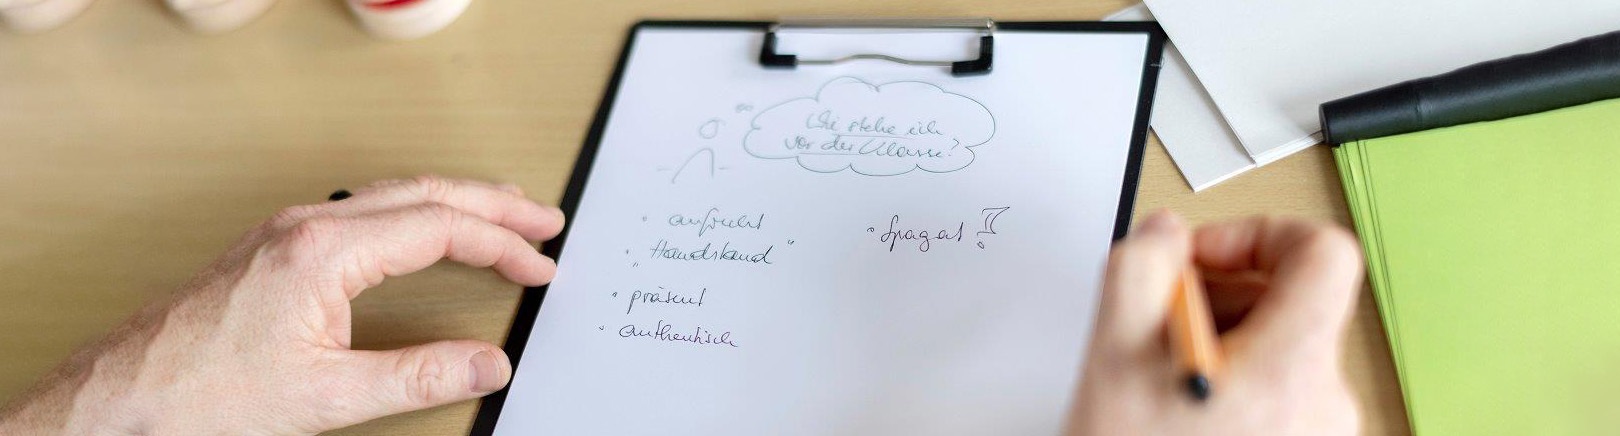 Wie stehe ich
vor der Klasse?
• aufrecht
• „Handstand"
• präsent
• authentisch
• Spagat!